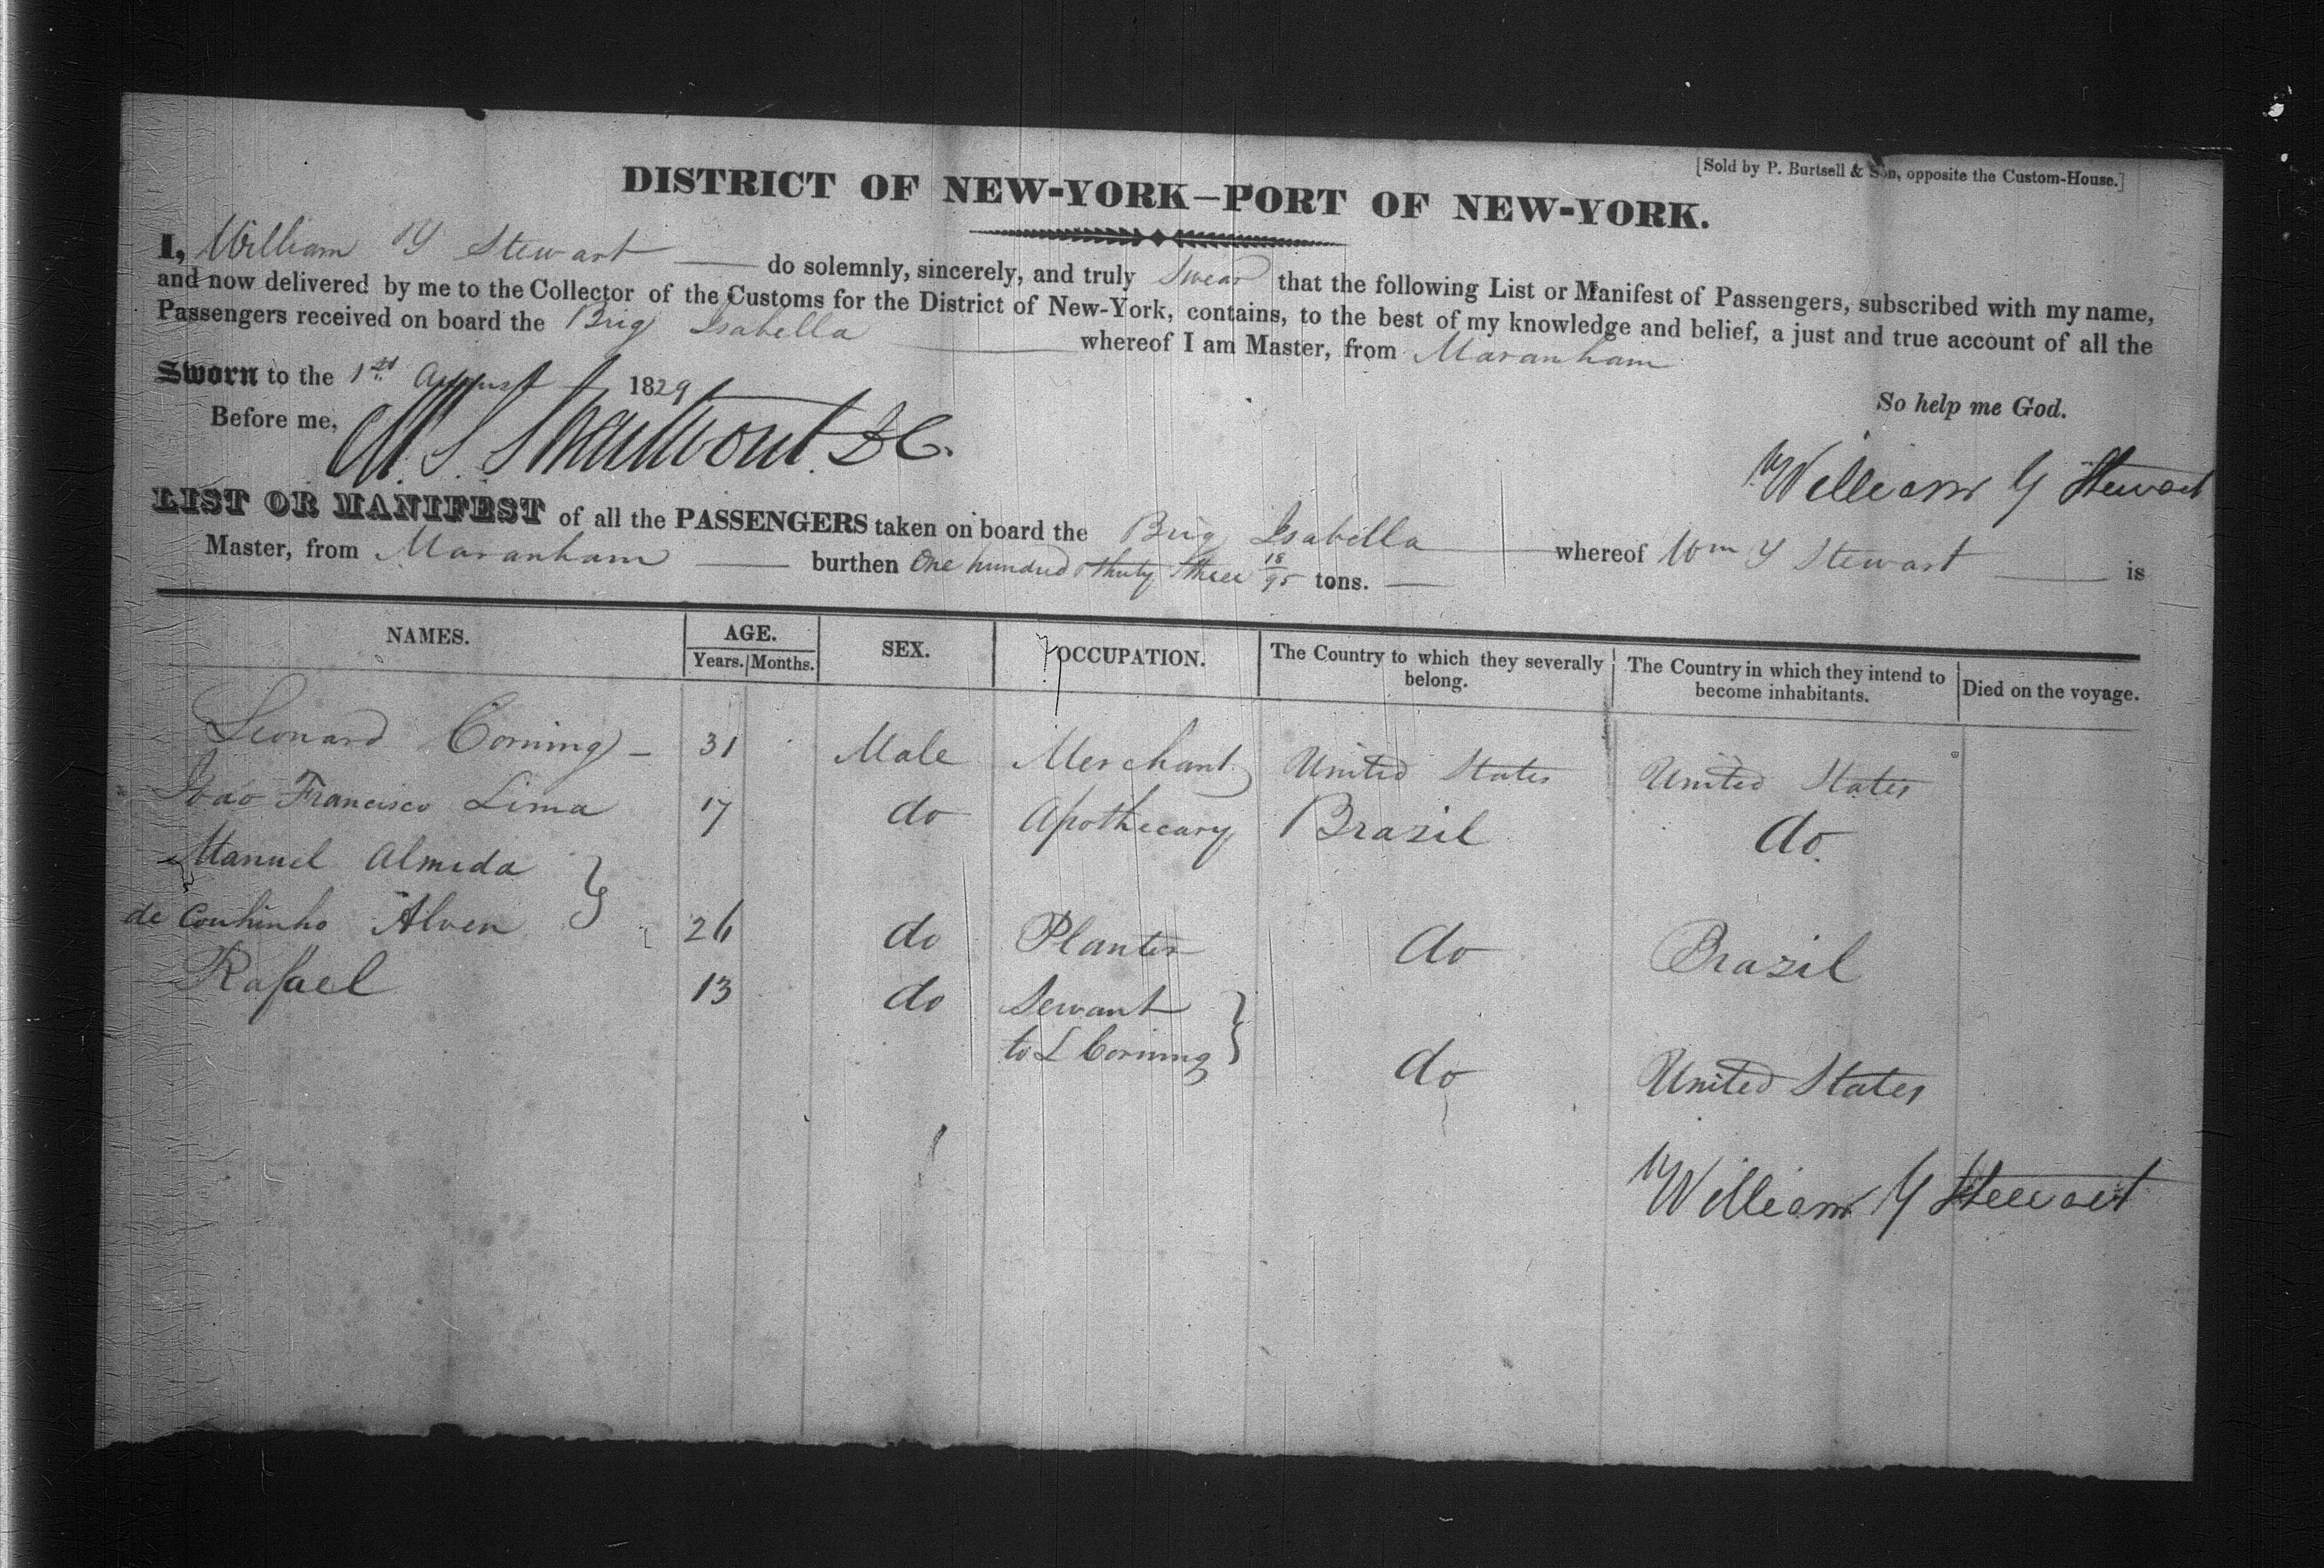 [Sold by P. Burtsell & Son, opposite the Custom-House.]
DISTRICT OF NEW-YORK—PORT OF NEW-YORK.
I, William Y Stewart do solemnly, sincerely, and truly Swear that the following List or Manifest of Passengers, subscribed with my name,
and now delivered by me to the Collector of the Customs for the District of New-York, contains, to the best of my knowledge and belief, a just and true account of all the
Passengers received on board the Brig Isabella whereof I am Master, from Maranham
Sworn to the 1st August 1829
So help me God.
Before me, M. S. Swartwout. D C.
William Y Stewart
LIST OR MANIFEST of all the PASSENGERS taken on board the Brig Isabella whereof Wm Y Stewart is
Master, from Maranham burthen One hundred thirty three 18/95 tons.
NAMES. AGE. SEX. OCCUPATION. The Country to which they severally belong. The Country in which they intend to become inhabitants. Died on the voyage.
Years. Months.
Leonard Corning 31 Male Merchant United States United States
João Francisco Lima 17 do Apothecary Brazil do.
Manuel Almeda }
de Couhinho Alven 26 do Planter do Brazil
Rafael 13 do Servant }
to L Corning do United States
William Y Stewart